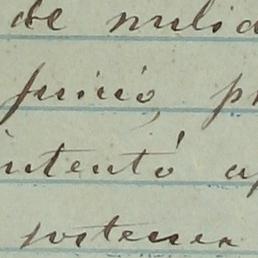 de nulid
juicio, p
intentó a
sostener